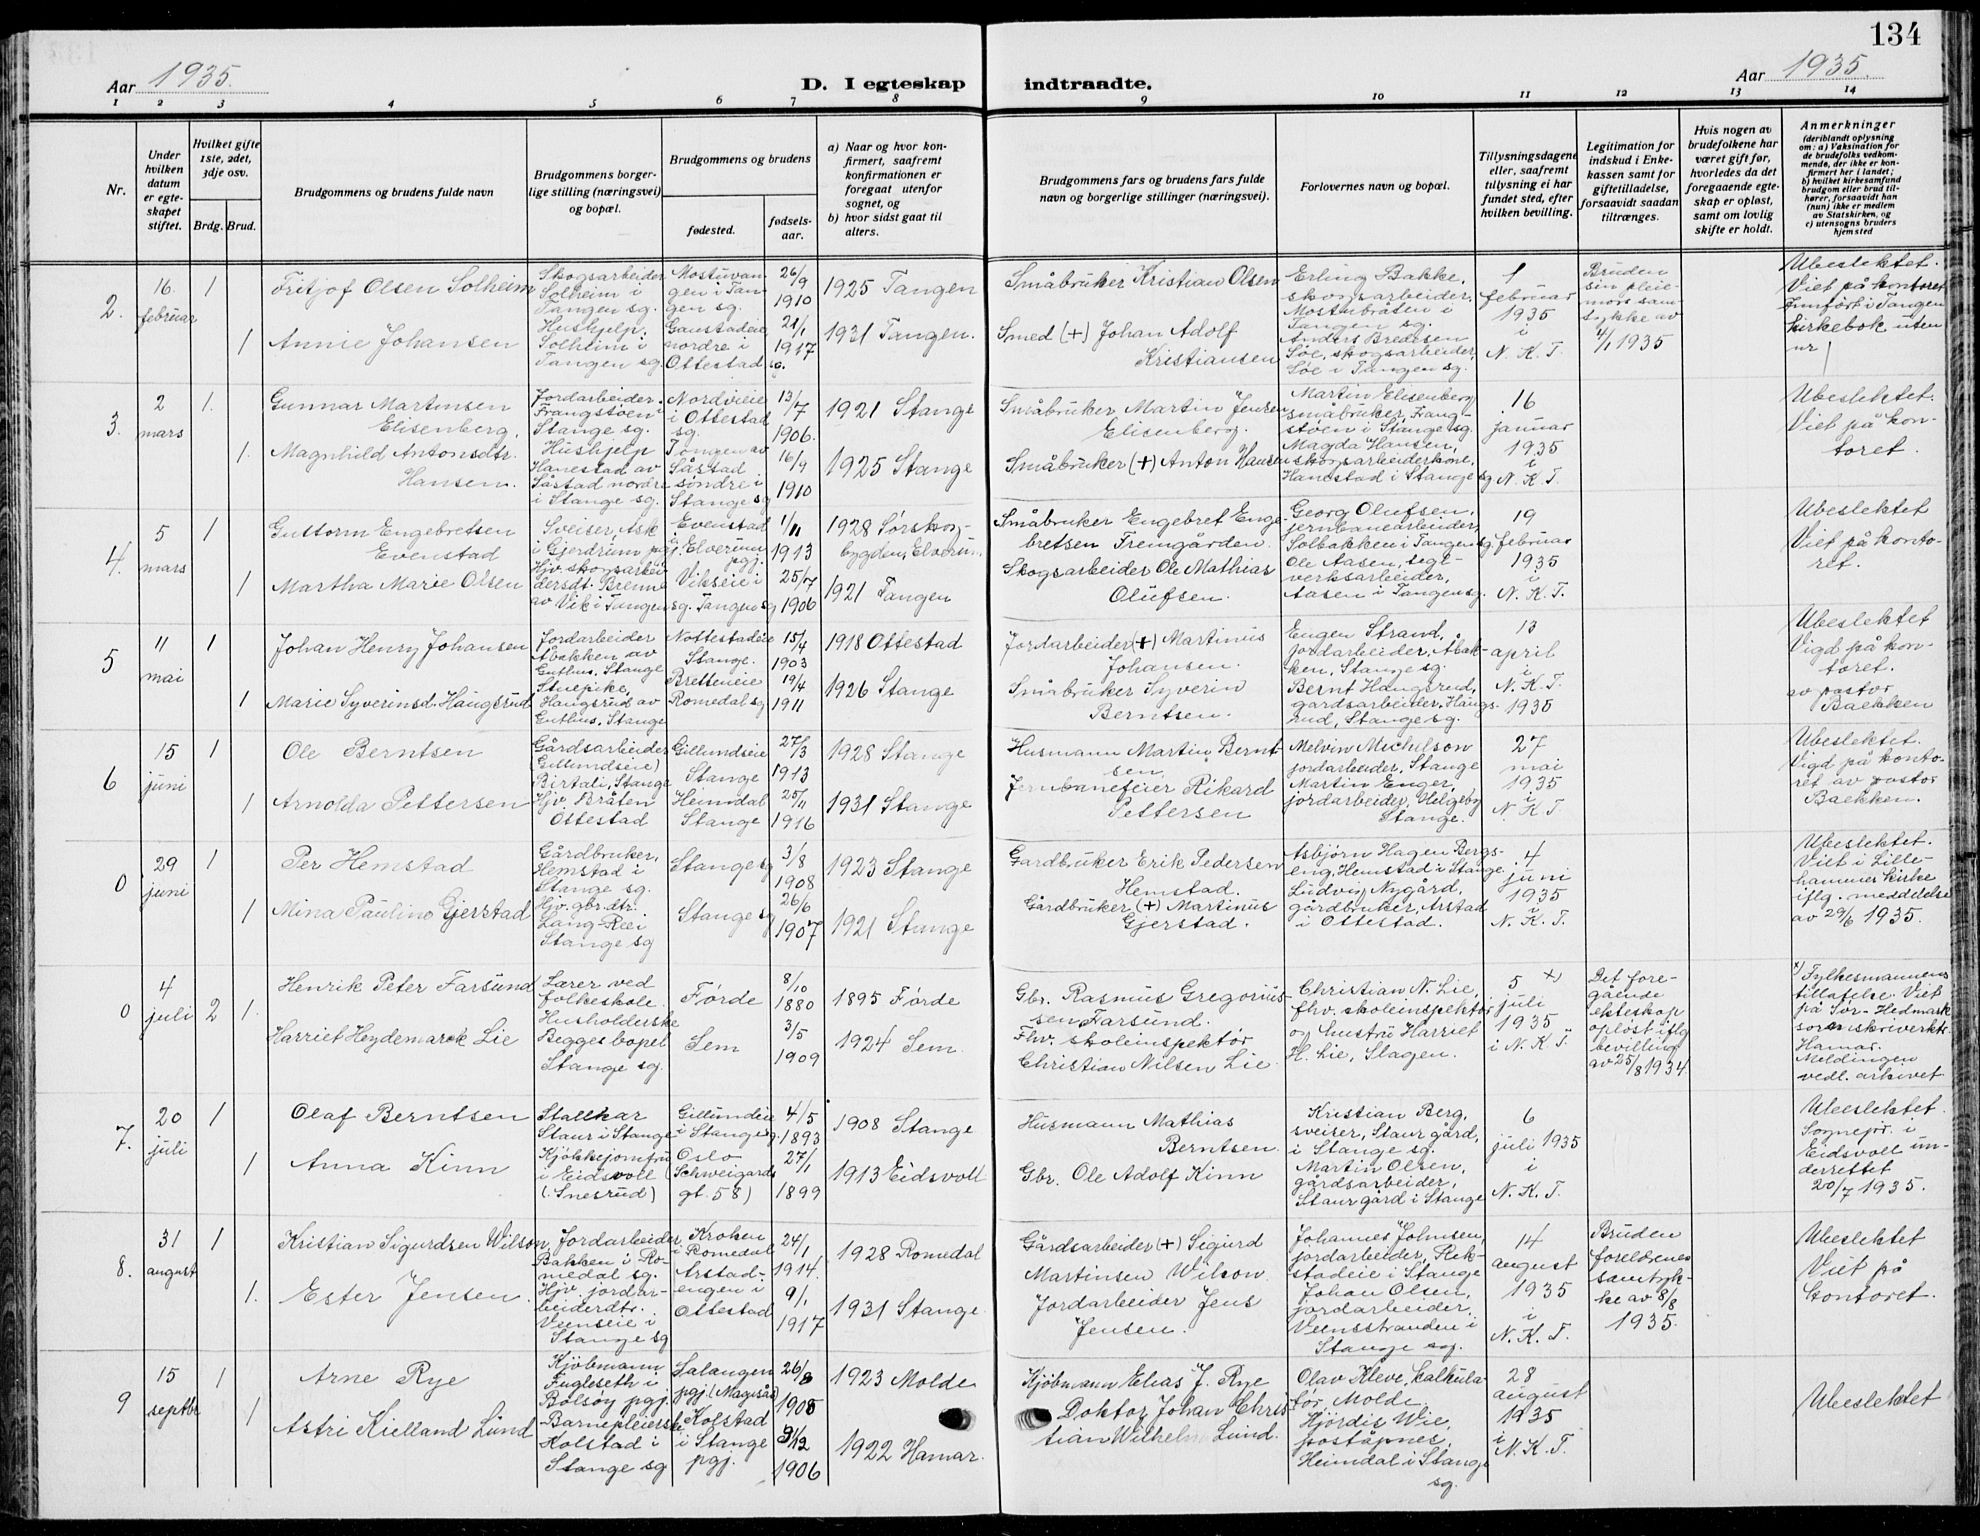 134
Aar 1935.
D. I egteskap indtraadte.
Aar 1935.
1 2 3 4 5 6 7 8 9 10 11 12 13 14
Nr.
Under hvilken datum er egteskapet stiftet.
Hvilket gifte 1ste, 2det, 3dje osv.
Brdg. Brud.
Brudgommens og brudens fulde navn
Brudgommens borgerlige stilling (næringsvei) og bopæl.
Brudgommens og brudens
fødested.
fødselsaar.
a) Naar og hvor konfirmert, saafremt konfirmationen er foregaat utenfor sognet, og
b) hvor sidst gaat til alters.
Brudgommens fars og brudens fars fulde navn og borgerlige stillinger (næringsvei).
Forlovernes navn og bopæl.
Tillysningsdagene eller, saafremt tillysning ei har fundet sted, efter hvilken bevilling.
Legitimation for indskud i Enkekassen samt for giftetilladelse, forsaavidt saadan tiltrænges.
Hvis nogen av brudefolkene har været gift før, hvorledes da det foregaaende egteskap er opløst, samt om lovlig skifte er holdt.
Anmerkninger
(deriblandt oplysning om: a) Vaksination for de brudefolks vedkommende, der ikke er konfirmert her i landet; b) hvilket kirkesamfund brudgom eller brud tilhører, forsaavidt han (hun) ikke er medlem av Statskirken, og c) utensogns bruders hjemsted
2. 16 februar 1
Fritjof Olsen Solheim
Skogsarbeider Solheim i Tangen sg.
Mostuvangen i Tangen sg.
26/9 1910
1925 Tangen
Småbruker Kristian Olsen
Erling Bakke, skogsarbeider, Mostubråten i Tangen sg.
1 februar 1935 i N. K. T.
Bruden sin pleiemors samtykke av 4/1 1935
Ubeslektet. Viet på kontoret Innført i Tangen kirkebok uten nr
1
Annie Johansen
Hushjelp, Solheim i Tangen sg.
Gaustadeie nordre i Ottestad sg.
21/1 1917
1931 Tangen.
Smed (+) Johan Adolf Kristiansen
Anders Bredesen Søe, skogsarbeider, Søe i Tangen sg.
3. 2 mars 1.
Gunnar Martinsen Elisenberg,
Jordarbeider. Frangstøen i Stange sg.
Nordvieie i Ottestad sg.
13/7 1906.
1921 Stange
Småbruker Martin Jensen Elisenberg.
Martin Elisenberg småbruker, Frangstøen i Stange sg.
16 januar 1935 i N. K. T.
Ubeslektet. Viet på kontoret.
1.
Magnhild Antonsdtr. Hansen.
Hushjelp Hanestad av Såstad nordre i Stange sg.
Tongen av Såstad søndre i Stange sg
16/9 1910
1925 Stange
Småbruker (+) Anton Hansen
Magda Hansen, skogsarbeiderkone, Hanestad i Stange sg
4. 5 mars 1
Guttorm Engebretsen Evenstad
Sveiser, Ask i Gjerdrum pgj.
Evenstad i Elverum pgj.
1/11 1913
1928 Sørskogbygden, Elverum.
Småbruker Engebret Engebretsen Fremgården.
Georg Olufsen, jernbanearbeider, Solbakken i Tangen sg.
19 februar 1935 i N. K. T.
Ubeslektet Viet på kontoret.
1
Martha Marie Olsen
Hjv. skogsarbeidersdt. Brenne av Vik i Tangen sg.
Vikseie i Tangen sg
25/7 1906
1921 Tangen
Skogsarbeider Ole Mathias Olufsen.
Ole Aasen, teglverksarbeider, Aasen i Tangen sg.
5 11 mai 1
Johan Henry Johansen
Jordarbeider Åbakken av Guthus, Stange
Nottestadeie Stange.
15/4 1903
1918 Ottestad
Jordarbeider (+) Martinus Johansen.
Eugen Strand, jordarbeider, Åbakken, Stange sg.
13 april i N. K. T. 1935
Ubeslektet Vigd på kontoret. av pastor Bakken
1
Marie Syverinsd. Haugsrud
Stuepike, Haugsrud av Guthus. Stange
Bretteneie Romedal sg
19/4 1911
1926 Stange
Småbruker Syverin Berntsen.
Bernt Haugsrud, gårdsarbeider, Haugsrud, Stange sg.
6 15 juni 1
Ole Berntsen
Gårdsarbeider (Gillundseie) Birtali, Stange
Gillundseie Stange
27/3 1913
1928 Stange
Husmann Martin Berntsen
Melvin Michelson jordarbeider, Stange
27 mai 1935 i N. K. T.
Ubeslektet. Vigd på kontoret av pastor Bakken.
1
Arnolda Pettersen
Hjv. Bråten Ottestad
Heimdal Stange
25/11 1916
1931 Stange
Jernbanefeier Rikard Pettersen
Martin Enger, jordarbeider, Helgeby Stange.
0 29 juni 1
Per Hemstad
Gårdbruker, Hemstad i Stange sg.
Stange sg
3/8 1908
1923 Stange
Gardbruker Erik Pedersen Hemstad.
Asbjørn Hagen Bergseng, Hemstad i Stange
4 juni 1935 i N. K. T.
Ubeslektet. Viet i Lillehammer kirke iflg. meddelelse av 29/6 1935.
1
Mina Pauline Gjerstad
Hjv. gbr.dtr. Lang-Rei i Stange sg
Stange sg
26/6 1907
1921 Stange
Gårdbruker (+) Martinus Gjerstad.
Ludvig Nygård, gårdbruker, Arstad i Ottestad.
0 4 juli 2
Henrik Peter Farsund
Lærer ved folkeskole.
Førde
8/10 1880
1895 Førde
Gbr. Rasmus Gregoriussen Farsund.
Christian N. Lie, fhv. skoleinspektør og hustru Harriet H. Lie, Slagen.
5 x) juli 1935 i N. K. T.
Det foregående ekteskap opløst iflg bevilling av 25/8 1934.
x) Fylkesmannens tillatelse. Viet på Sør-Hedmark sorenskriverkt. Hamar. Meldingen vedl. arkivet
1.
Harriet Heydemarck Lie
Husholderske Begges bopel Stange sg.
Sem
3/5 1909
1924 Sem.
Fhv. skoleinspektør Christian Nilsen Lie
7. 20 juli 1
Olaf Berntsen
Stallkar Staur i Stange
Gillundeie i Stange sg.
4/5 1893
1908 Stange
Husmann Mathias Berntsen
Kristian Berg, sveiser, Staur gård, i Stange sg.
6 juli 1935 i N. K. T.
Ubeslektet. Sognepr. i Eidsvoll underrettet 20/7 1935.
1
Anna Kinn
Kjøkkjomfru i Eidsvoll (Snesrud)
Oslo (Schweigards gt. 58)
27/1 1899
1913 Eidsvoll
Gbr. Ole Adolf Kinn
Martin Olsen, gårdsarbeider, Staur gård i Stange
8. 31 august 1
Kristian Sigurdsen Wilson
Jordarbeider Bakken i Romedal sg.
Kroken i Romedal
24/1 1914.
1928 Romedal
Gårdsarbeider (+) Sigurd Martinsen Wilson
Johannes Johnsen, jordarbeider, Rekstadeie i Stange
14 august 1935 i N. K. T.
Bruden foreldrenes samtykke av 8/8 1935.
Ubeslektet Viet på kontoret.
1.
Ester Jensen.
Hjv. jordarbeiderdtr. Veenseie i Stange sg
Arstadengen i Ottestad
9/1 1917
1931 Stange.
Jordarbeider Jens Jensen.
Johan Olsen, jordarbeider, Veensstranden i Stange sg.
9 15 septbr 1
Arne Rye
Kjøbmann Fugleseth i Bolsøy pgj.
Salangen pgj.
26/8 1905
1923 Molde
Kjøbmann Elias J. Rye
Olav Kleve, kalkulatør, Molde
28 august 1935 i N. K. T.
Ubeslektet
1
Astri Kielland Lund
Barnepleierske Kolstad i Stange sg
Kolstad i Stange pgj.
9/12 1906
1922 Hamar.
Doktor Johan Christian Wilhelm Lund.
Hjørdis Wie, poståpner, Heimdal i Stange sg.